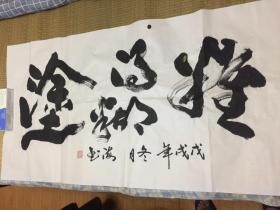 難得糊塗
戊戌年冬月